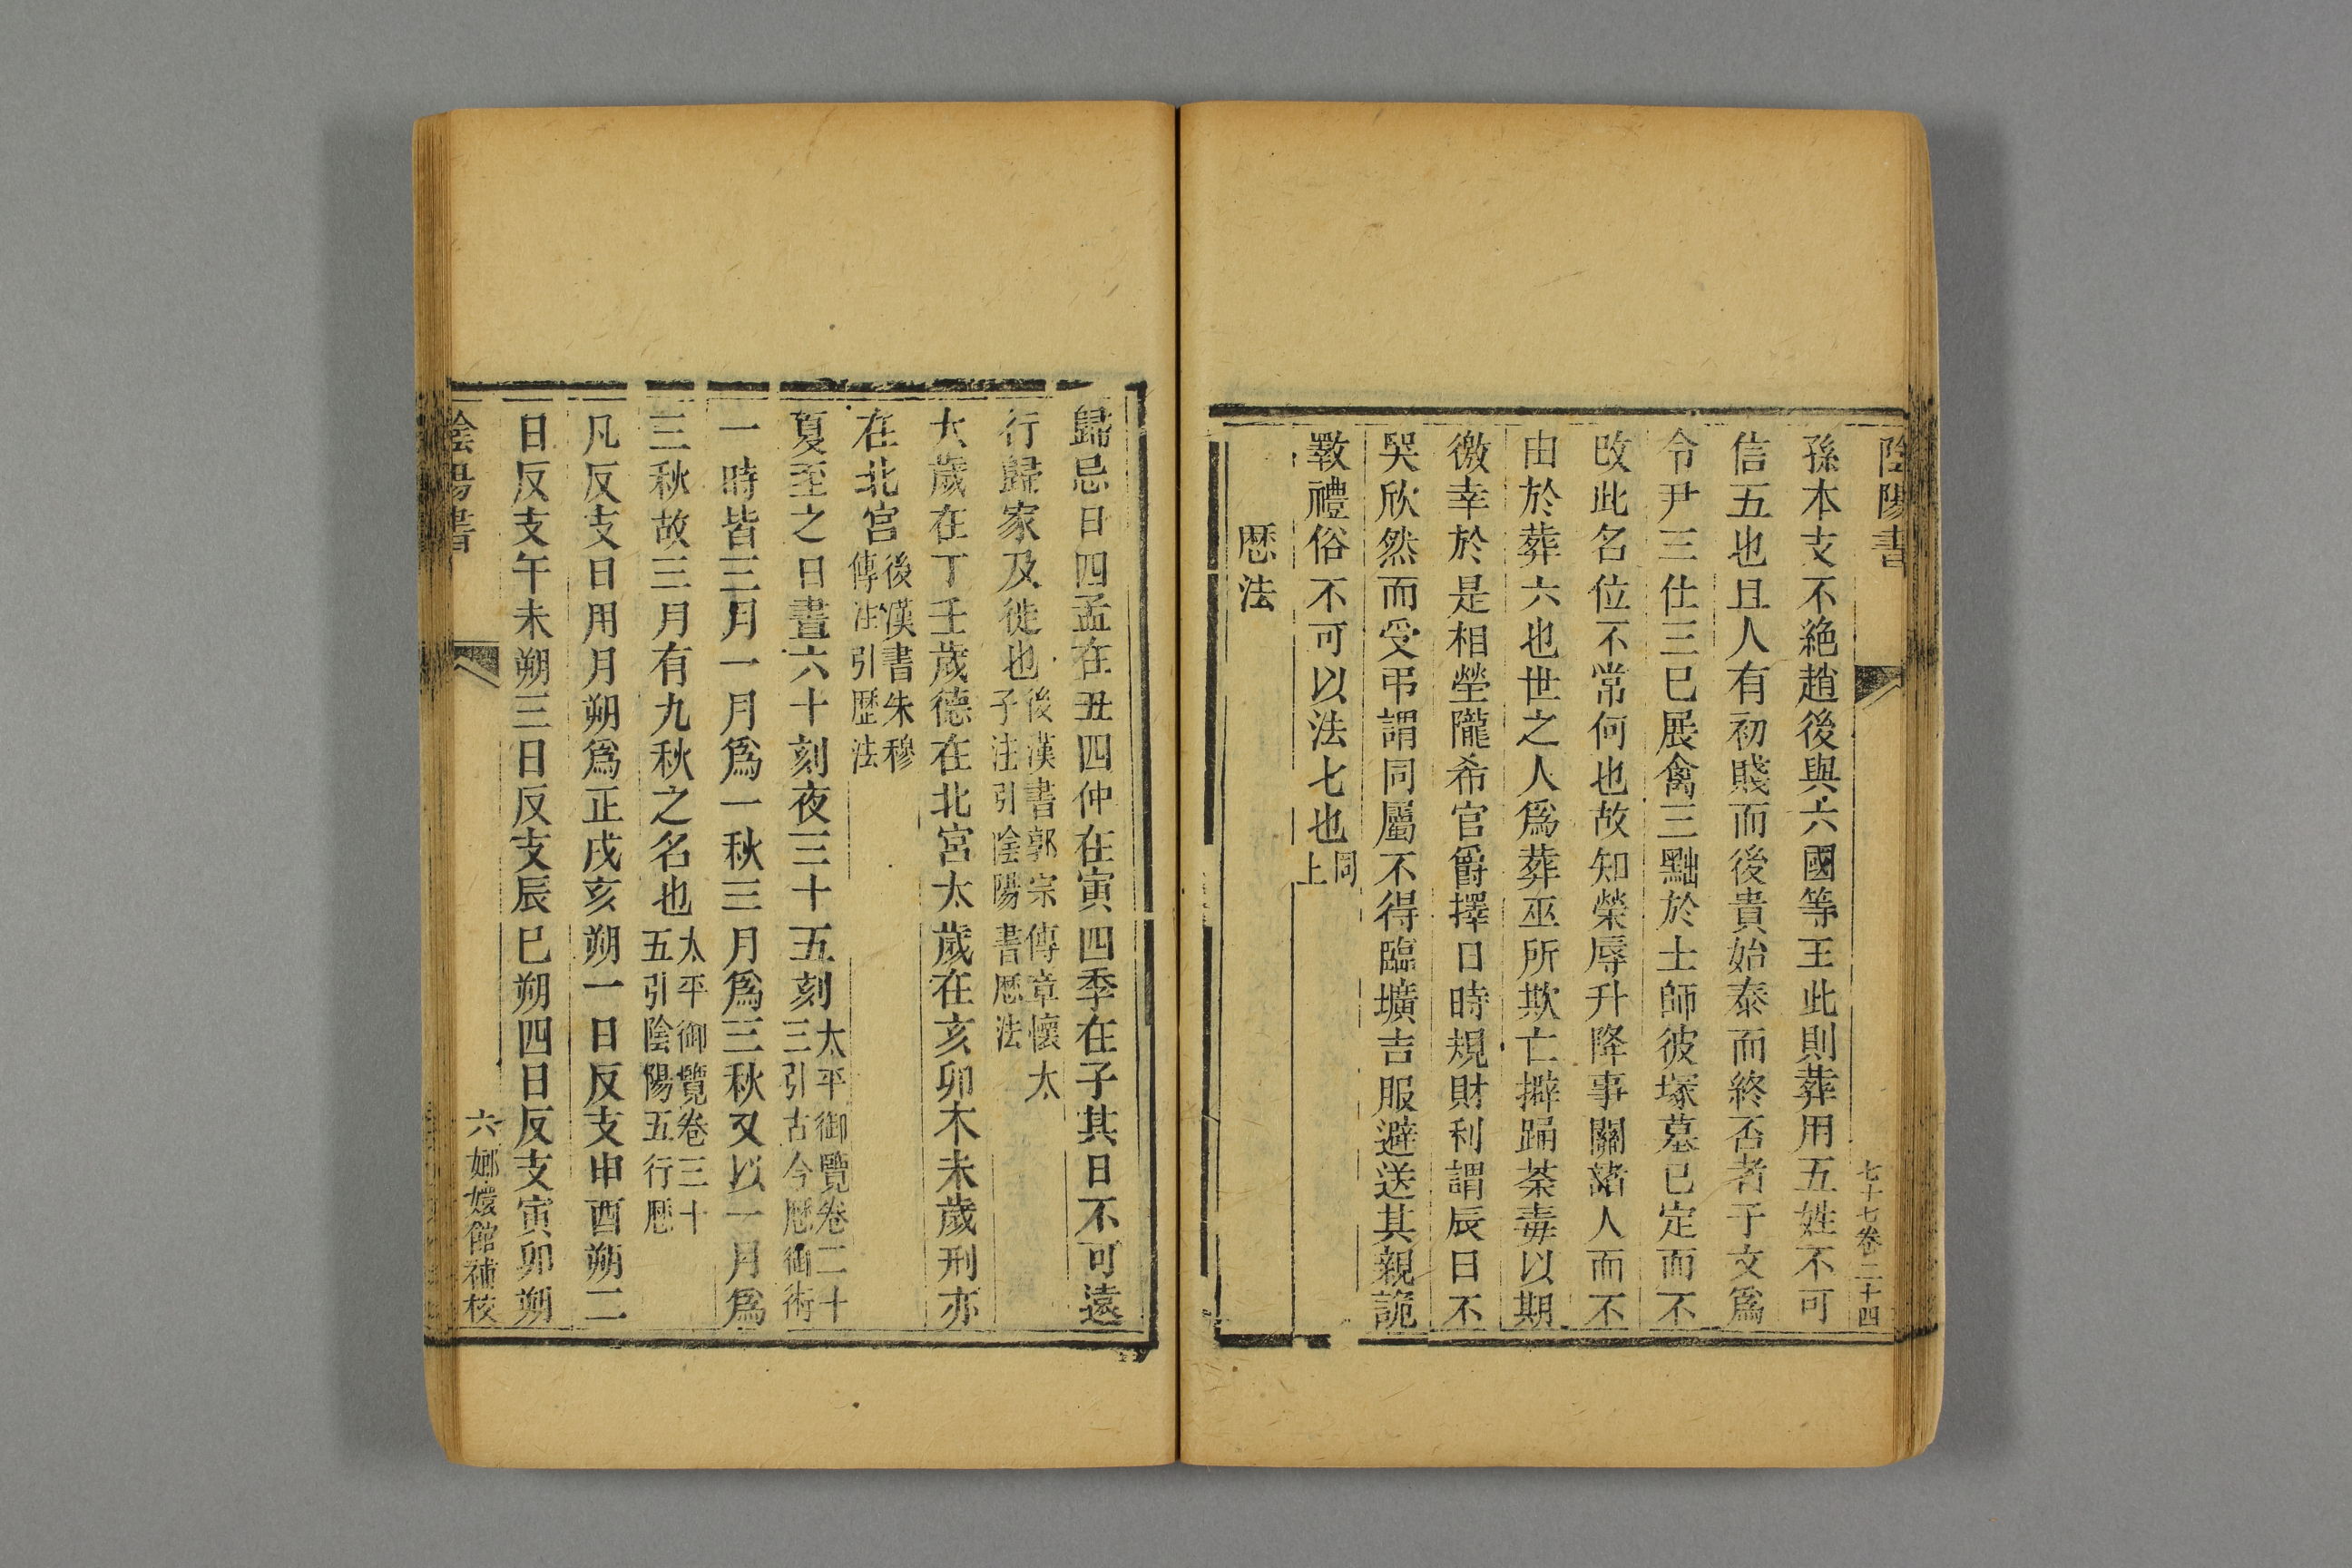 陰陽書
七十七卷二十四
孫本支不絶趙後與六國等王此則葬用五姓不可
信五也且人有初賤而後貴始泰而終否者子文爲
令尹三仕三已展禽三黜於士師彼塚墓已定而不
改此名位不常何也故知榮辱升降事關諸人而不
由於葬六也世之人爲葬巫所欺亡擗踊荼毒以期
徼幸於是相塋隴希官爵擇日時規財利謂辰日不
哭欣然而受弔謂同屬不得臨壙吉服避送其親詭
斁禮俗不可以法七也同上
歷法
歸忌日四孟在丑四仲在寅四季在子其日不可遠
行歸家及徙也後漢書郭宗傳章懷太子注引陰陽書歷法
大歲在丁壬歲德在北宮太歲在亥卯木未歲刑亦
在北宮後漢書朱穆傳注引歷法
夏至之日晝六十刻夜三十五刻太平御覽卷二十三引古今歷御術
一時皆三月一月爲一秋三月爲三秋又以一月爲
三秋故三月有九秋之名也太平御覽卷三十五引陰陽五行歷
凡反支日用月朔爲正戌亥朔一日反支申酉朔二
日反支午未朔三日反支辰巳朔四日反支寅卯朔
陰陽書
六 嫏嬛館補校